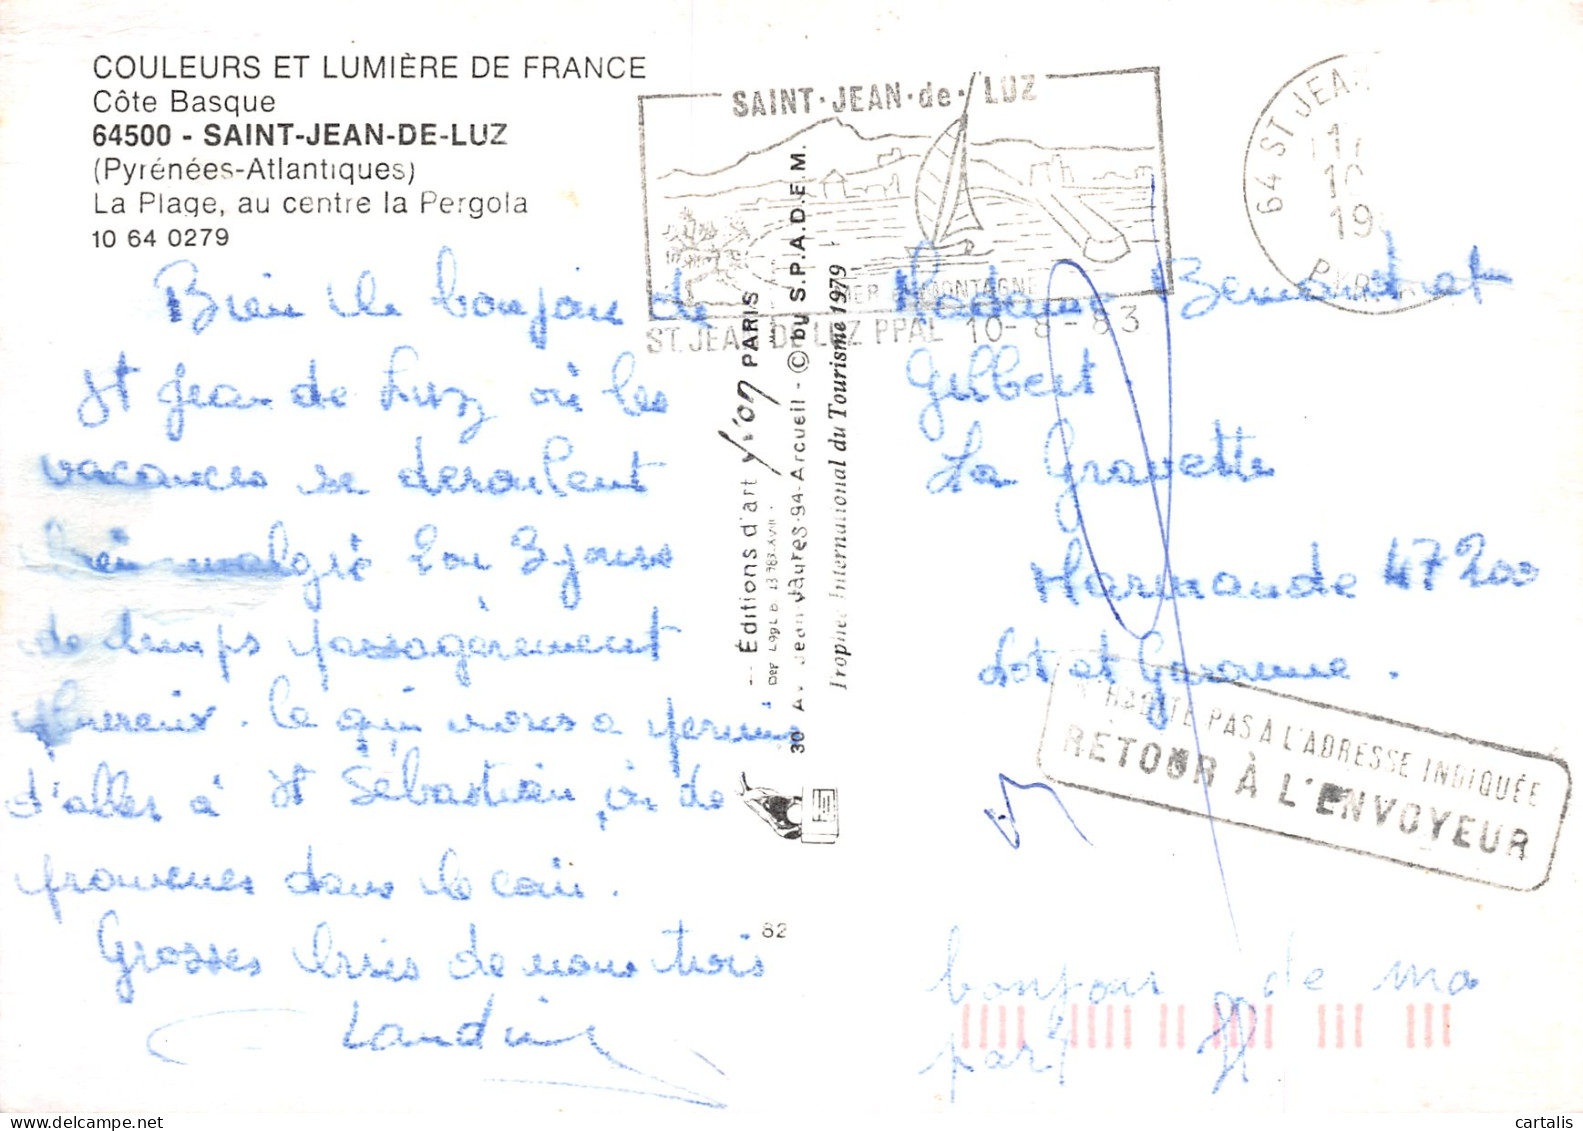 COULEURS ET LUMIÈRE DE FRANCE
Côte Basque
64500 - SAINT-JEAN-DE-LUZ
(Pyrénées-Atlantiques)
La Plage, au centre la Pergola
10 64 0279
Bien le bonjour de
St Jean de Luz où les
vacances se deroulent
bien malgré 2 ou 3 jours
de temps passagèrement
pluvieux. Ce qui nous a permis
d'aller à St Sébastian, où de
promenes dans le coin.
Grosses bises de nous trois
82
Éditions d'art yvon PARIS
30 Av Jean Jaures-94-Arcueil - © by S.P.A.D.E.M.
Trophée International du Tourisme 1979
SAINT·JEAN·de·LUZ
MER MONTAGNE
ST. JEAN DE LUZ PPAL 10-8-83
64 ST JEAN
17
10
19
PYR
Madame
Gilbert
La Gravette
Marmande 47200
Lot et Garonne.
N'HABITE PAS À L'ADRESSE INDIQUÉE
RETOUR À L'ENVOYEUR
bonjour de ma
part
cartalis